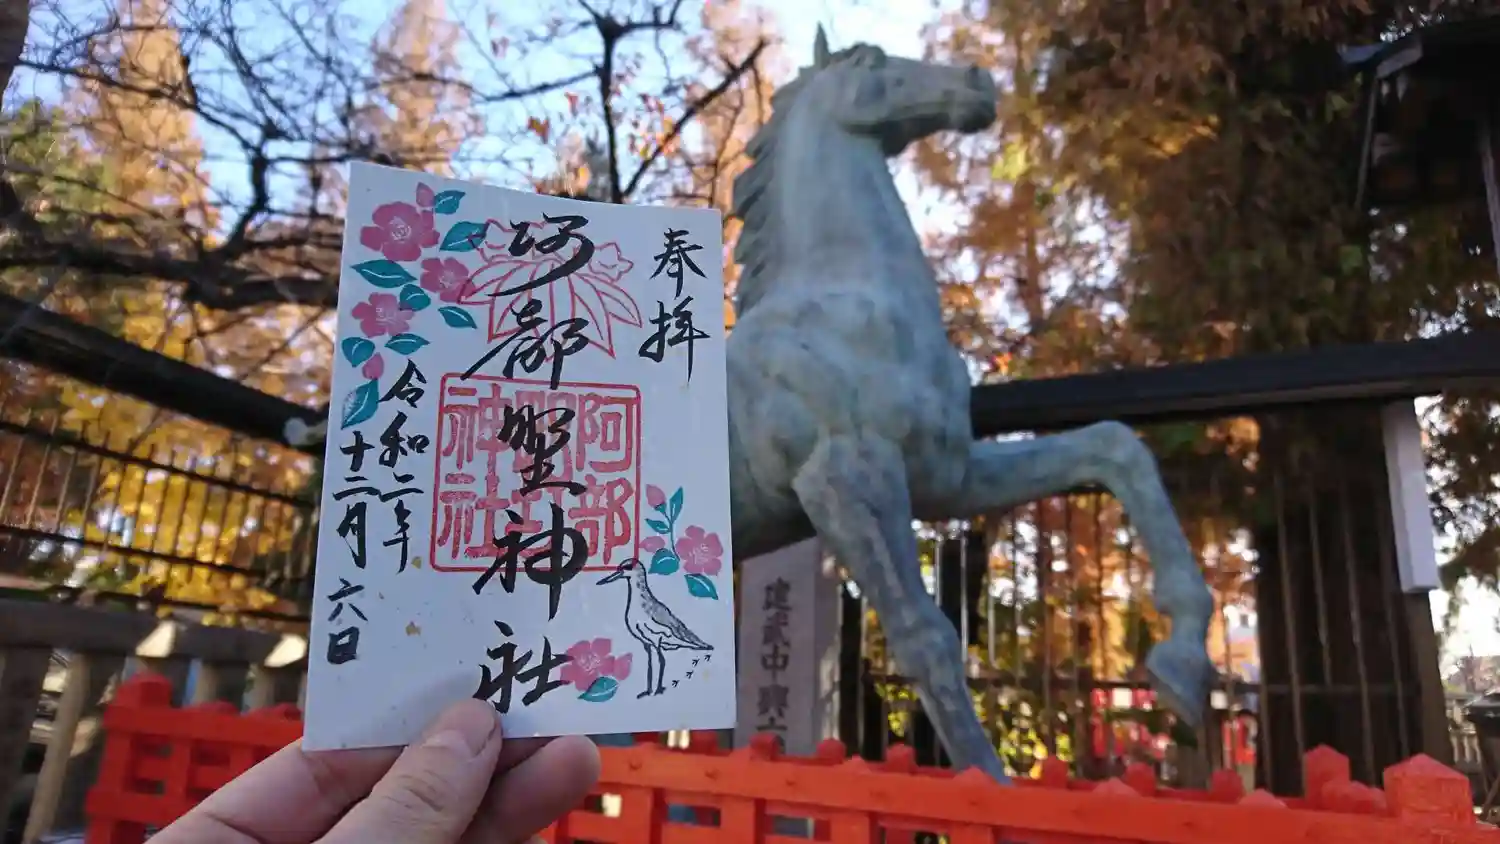 奉拝
阿部野神社
阿部
神社
令和二年
十二月六日
建武中興